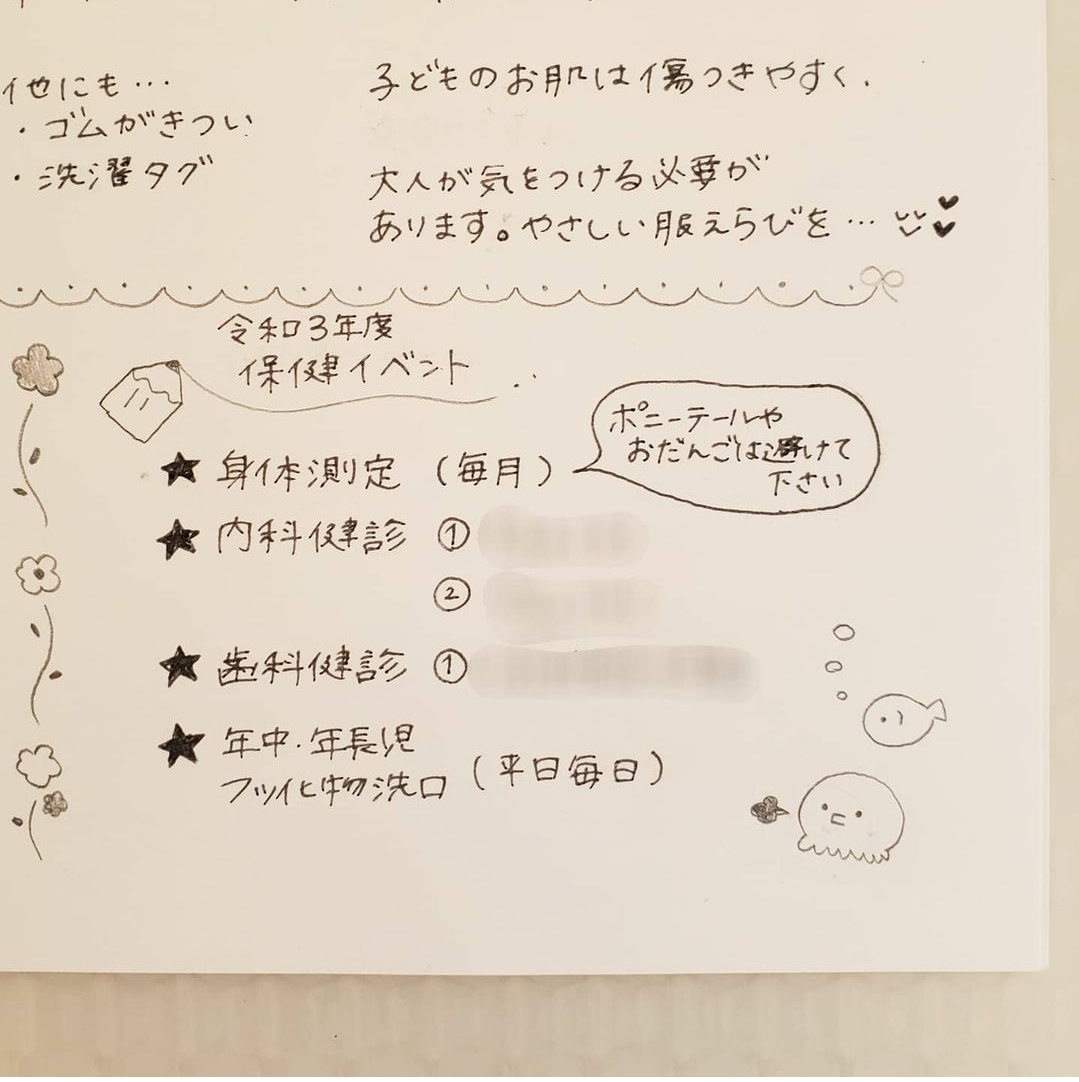 他にも…
・ゴムがきつい
・洗濯タグ
子どものお肌は傷つきやすく.
大人が気をつける必要が
あります。やさしい服えらびを…
令和3年度
保健イベント
★ 身体測定 (毎月)
ポニーテールや
おだんごは避けて
下さい
★ 内科健診 ①
②
★ 歯科健診 ①
★ 年中・年長児
フッイヒ物洗口 (平日毎日)